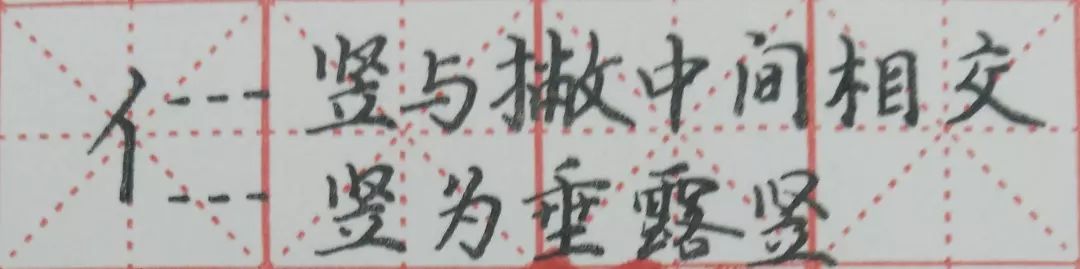 亻--- 竖与撇中间相交
--- 竖为垂露竖